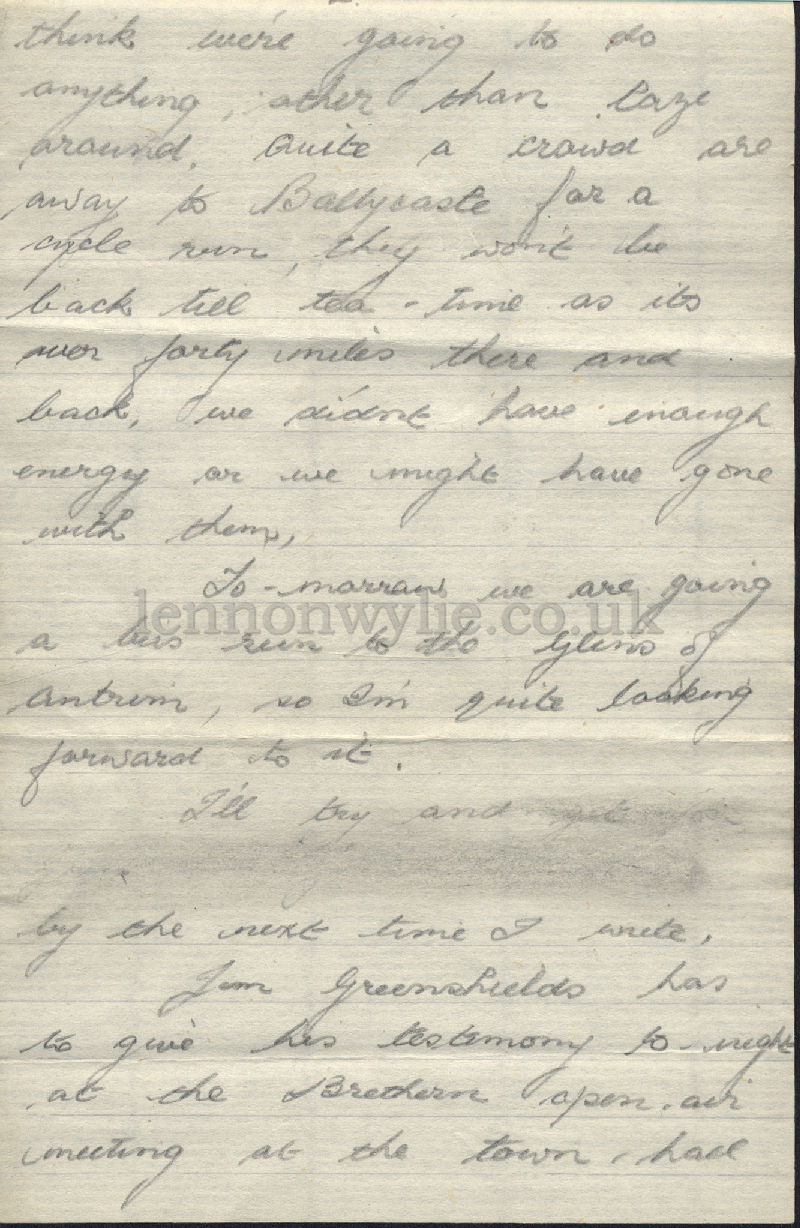 think we're going to do
anything, other than laze
around. Quite a crowd are
away to Ballycastle for a
cycle run, they won't be
back till tea-time as its
over forty miles there and
back, we didnt have enough
energy or we might have gone
with them,
To-morrow we are going
lennonwylie.co.uk
a bus run to the Glens of
Antrim, so I'm quite looking
forward to it.
I'll try and
by the next time I write,
Jim Greenshields has
to give his testimony to-night
at the Brethern open-air
meeting at the town-hall